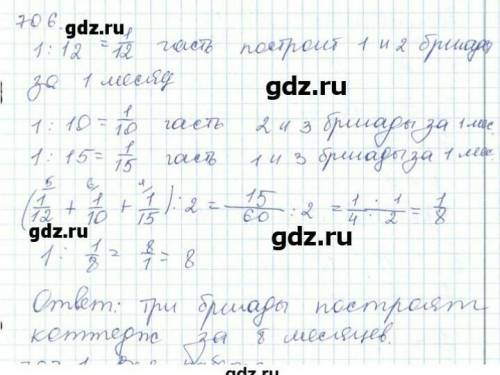 706.
1:12 = 1/12 часть построит 1 и 2 бригады
gdz.ru
за 1 месяц
gdz.ru
1:10 = 1/10 часть 2 и 3 бригады за 1 мес
1:15 = 1/15 часть 1 и 3 бригады за 1 мес
(1/12 + 1/10 + 1/15) : 2 = 15/60 : 2 = 1 · 1/4 · 2 = 1/8
gdz.ru
1 : 1/8 = 8/1 = 8
Ответ: три бригады построят
gdz.ru
коттедж за 8 месяцев.
gdz.ru